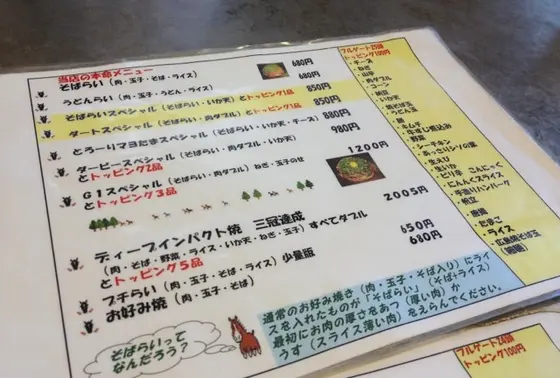 当店の本命メニュー
そばらい（肉・玉子・そば・ライス） 680円
うどんらい（肉・玉子・うどん・ライス） 680円
そばらいスペシャル（そばらい・いか天）とトッピング1品 850円
ダートスペシャル（そばらい・肉ダブル）とトッピング1品 850円
とろーりマヨたまスペシャル（そばらい・いか天・チーズ） 880円
ダービースペシャル（そばらい・肉ダブル・いか天） 980円
とトッピング2品
G1スペシャル（そばらい・肉ダブル）ねぎ・玉子のせ 1200円
とトッピング3品
ディープインパクト焼 三冠達成 2005円
（肉・そば・野菜・ライス・いか天・ねぎ・玉子）すべてダブル
とトッピング5品
プチらい（肉・玉子・そば・ライス）少量版 650円
お好み焼（肉・玉子・そば） 680円
そばらいって
なんだろう？
通常のお好み焼き（肉・玉子・そば入り）にライ
スを入れたものが「そばらい」（そば＋ライス）
最初にお肉の厚さをあつ（厚い肉）か
うす（スライス薄い肉）をえらんでください。
フルゲート
トッピング100円
・チーズ
・ねぎ
・山芋
・肉ダブル
・コーン
・納豆
・いか天
・焼そば玉
・うどん玉
・餅
・キムチ
・牛すじ煮込み
・野菜
・シーチキン
・あっさりシソの葉
・生えび
・生いか
・とり辛
・こんにゃく
・にんんくスライス
・手造りハンバーグ
・帆立
・たまご
・ライス
・広島焼そば玉
フルゲート24頭
トッピング100円